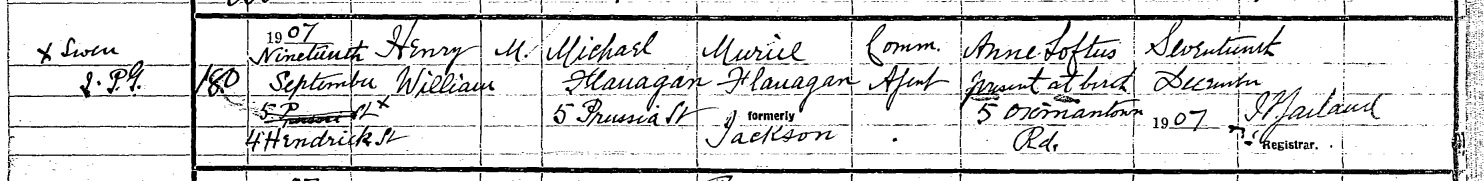 x Seven
J. P. G.
180
1907
Nineteenth
September
5 St x
4 Hendrick St
Henry
William
M.
Michael
Flanagan
5 Prussia St
Muriel
Flanagan
formerly
Jackson
Comm.
Agent
Anne Loftus
present at birth
5 Oxmantown
Rd.
Seventeenth
December
1907
Registrar.